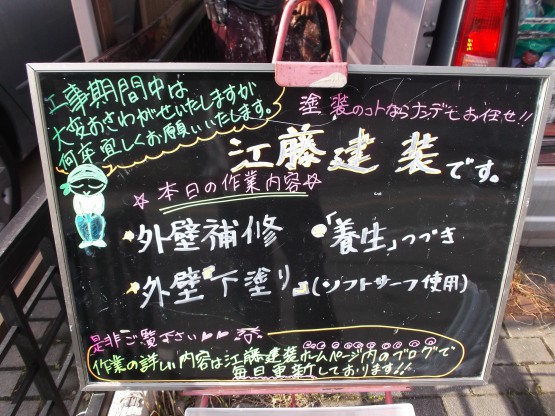 工事期間中は
大変おさわがせいたしますが
何卒宜しくお願いいたします。
塗装のコトならナンデモお任せ!!
江藤建装です。
☆本日の作業内容☆
★外壁補修 ●「養生」つづき
★外壁「下塗り」(ソフトサーフ使用)
是非ご覧下さい
作業の詳しい内容は江藤建装ホームページ内のブログで
毎日更新しております!!